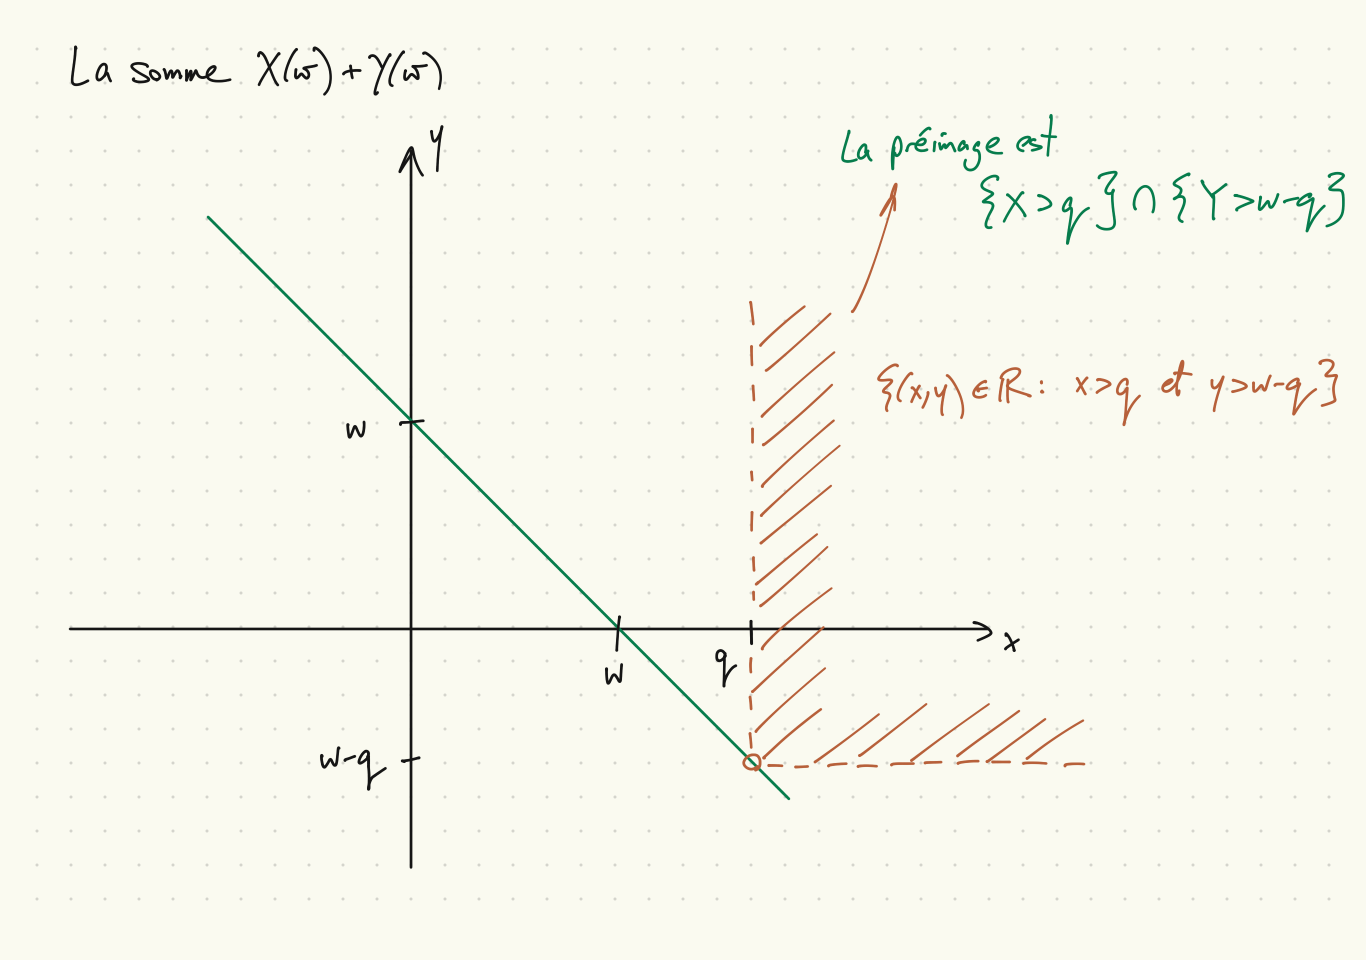 La somme X(ϖ)+Y(ϖ)
y
La préimage est
{X>q}∩{Y>w-q}
{(x,y)∈R: x>q et y>w-q}
w
x
w
q
w-q